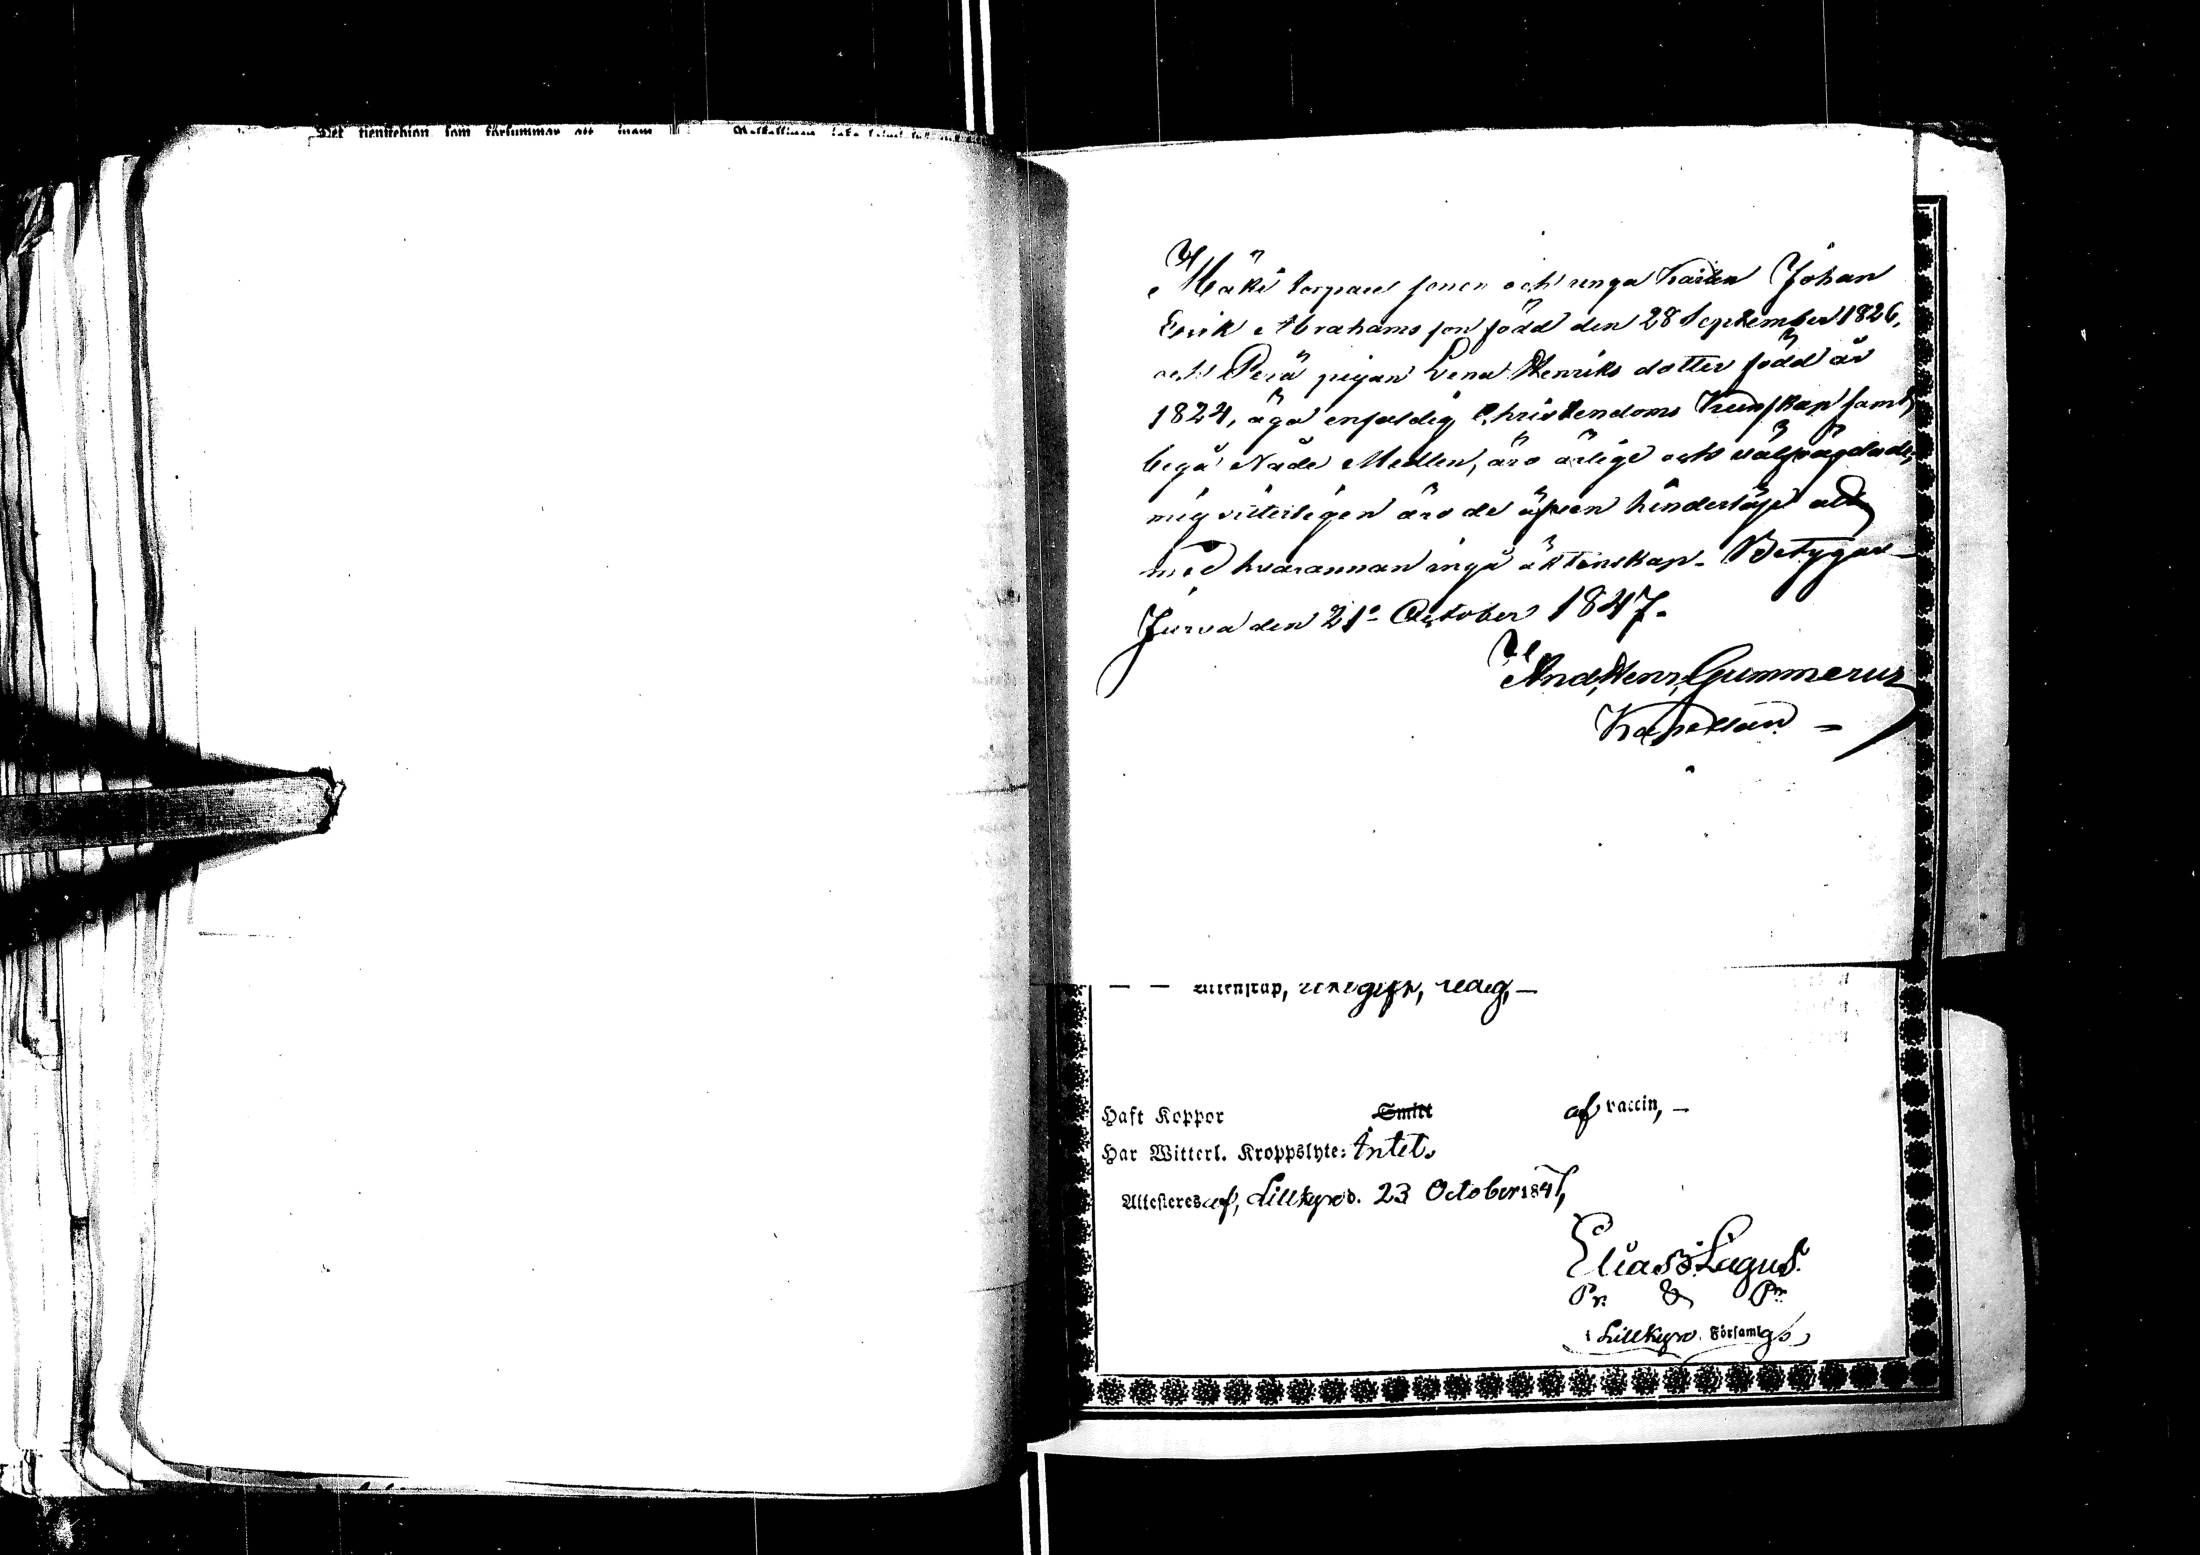 Det tienstehjon som försummar att inom
Mäki torpare sonen och unga Karlen Johan
Erik Abrahams son född den 28 September 1826,
och Perä pigan Lena Henriks dotter född år
1824, äga enfaldig Christendoms Kunskap samt
begå Nåde Medlen, äro ärlige och välfrägdade,
mig vitterligen äro de äfven hinderlöse att
med hvarannan ingå äktenskap. Betygar
Jurva den 21 October 1847.
And, Henr, Gummerus
Kapellan
— — Äktenskap, ledig, —
Haft Koppor Smitt af vaccin, —
Har Witterl. Kroppslyte: Intet.
Attesteres af, Lillkyro d. 23 October 1847,
Elias B. Lagus.
Pr. & P
i Lillkyro Församlgs